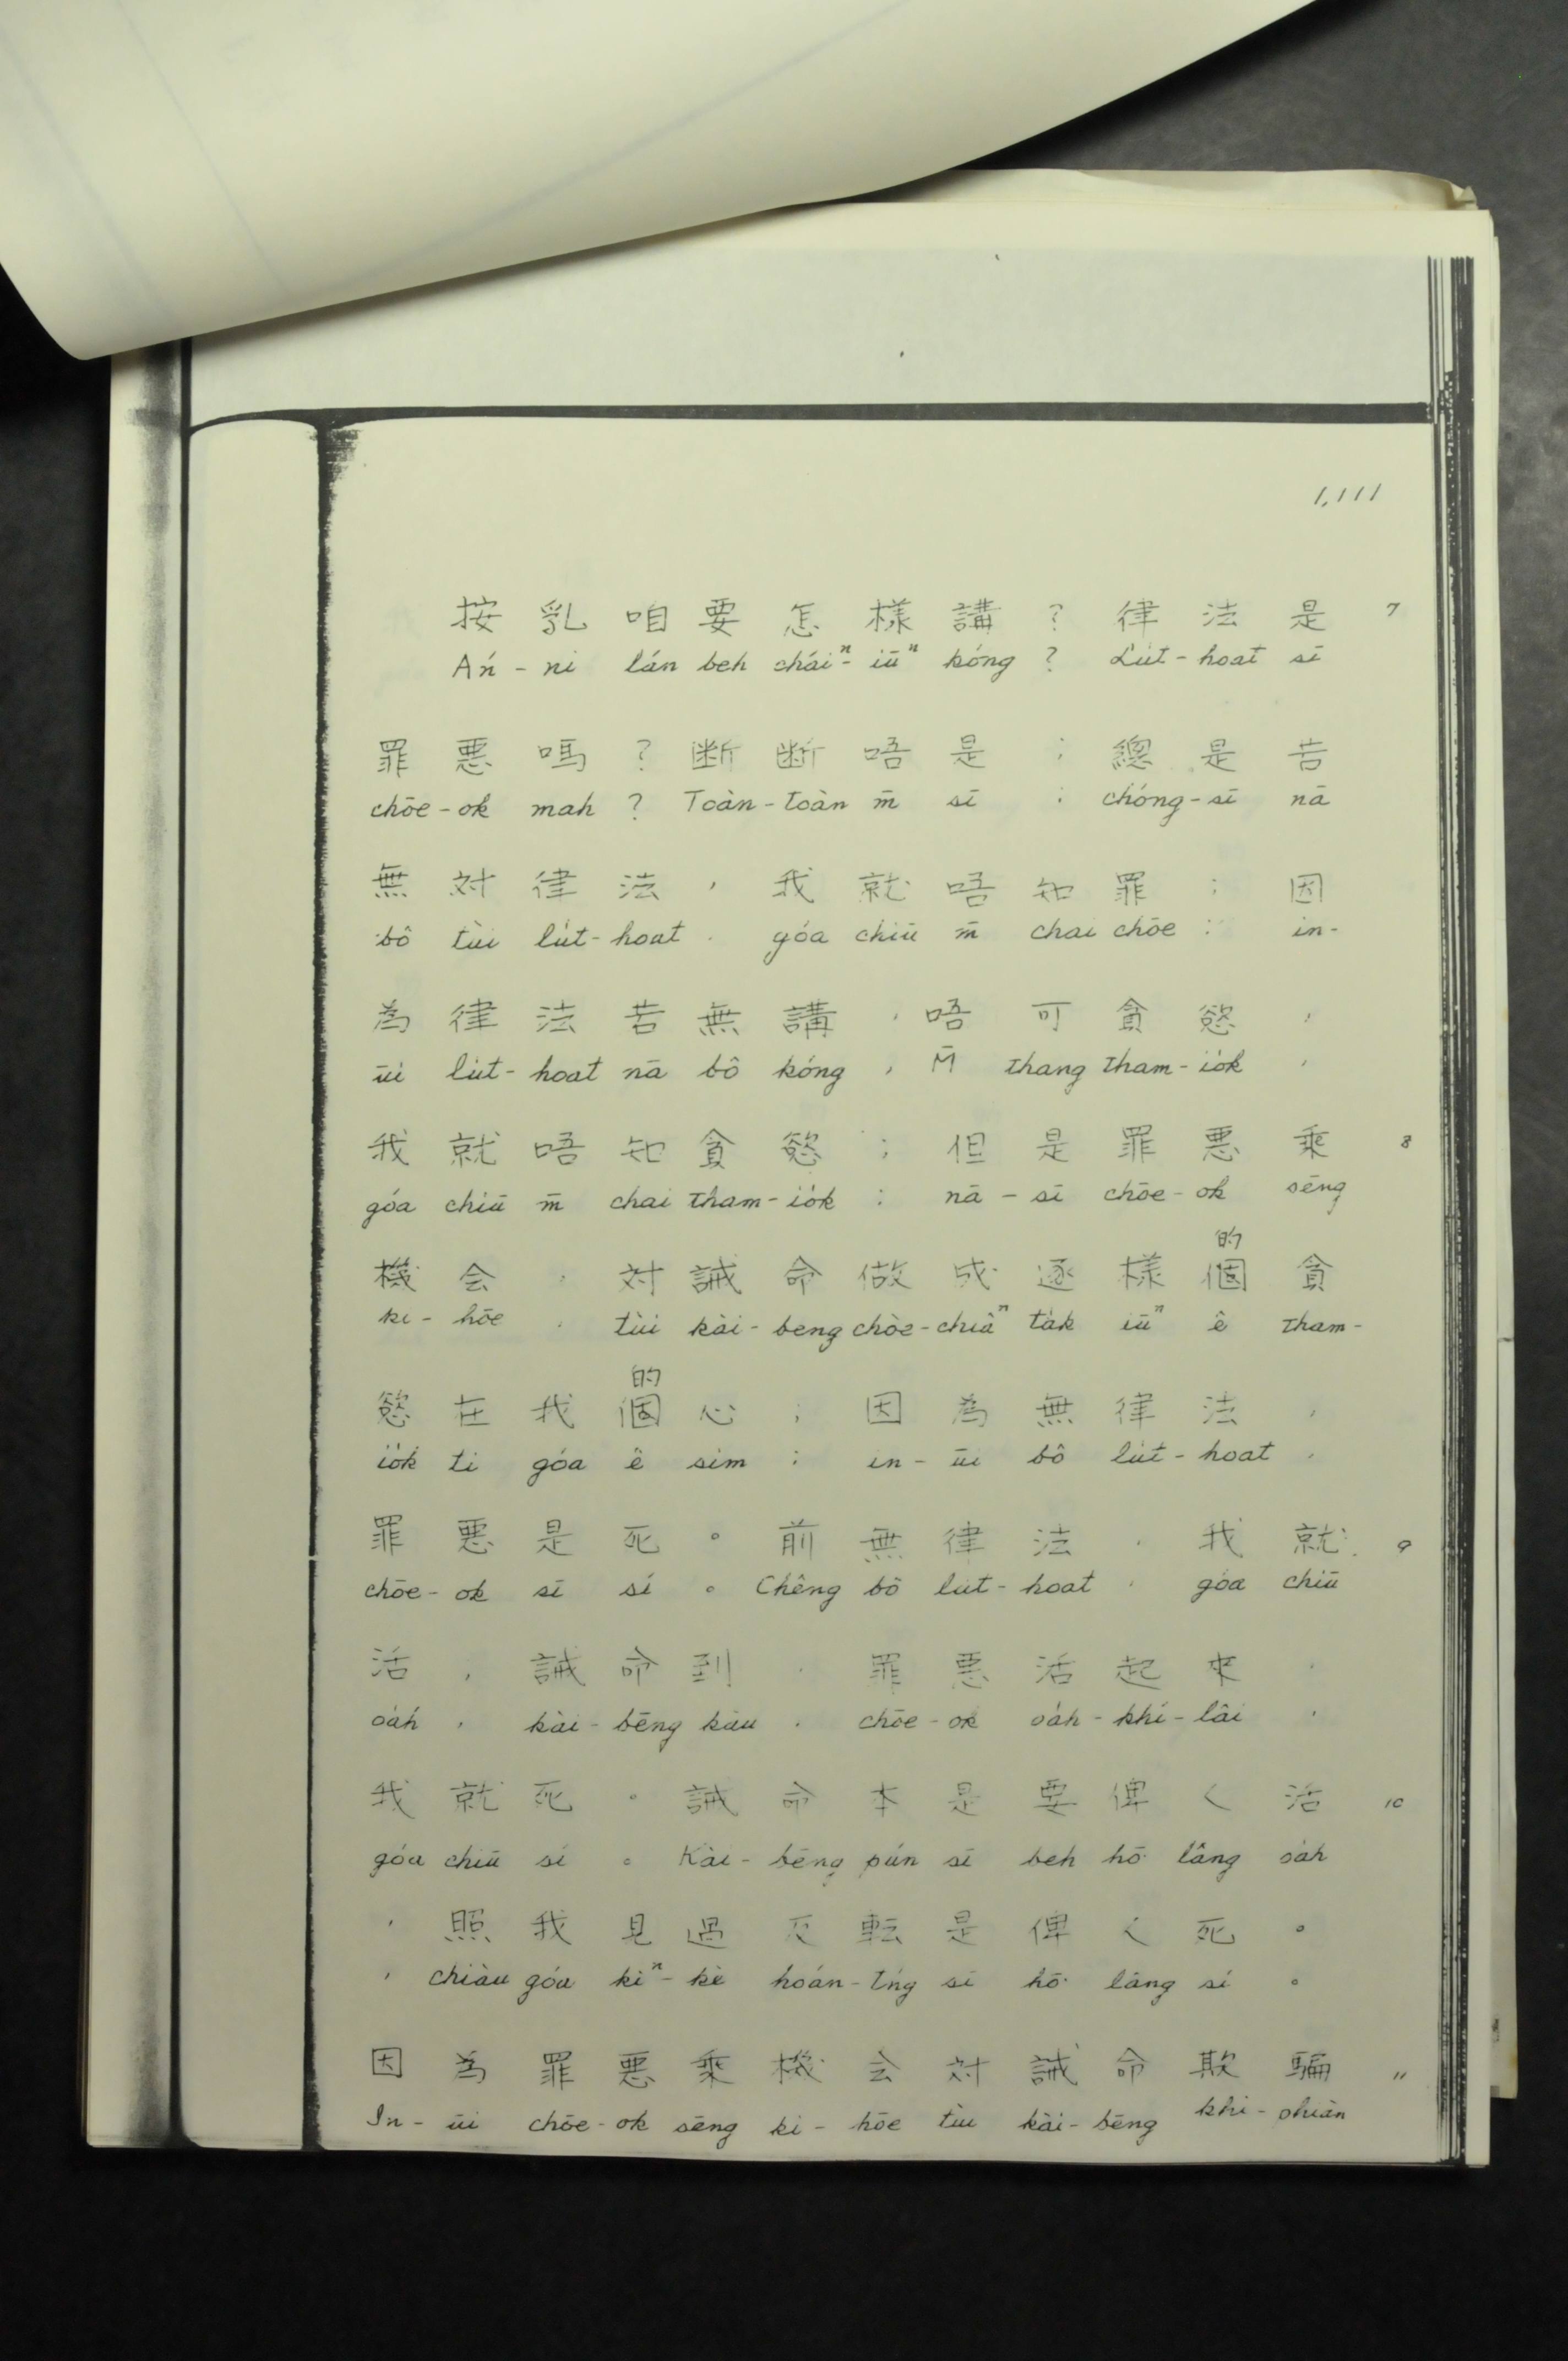 1,111
按乳咱要怎樣講？律法是 7
Án-ni lán beh cháiⁿ-iūⁿ kóng ? Lu̍t-hoat sī
罪惡嗎？断断唔是；總是若
chōe-ok mah ? Toàn-toàn m̄ sī ; chóng-sī nā
無対律法，我就唔知罪；因
bô tùi lu̍t-hoat , góa chiū m̄ chai chōe ; in-
為律法若無講，唔可貪慾，
ūi lu̍t-hoat nā bô kóng , M̄ thang tham-io̍k ,
我就唔知貪慾；但是罪惡乘 8
góa chiū m̄ chai tham-io̍k ; nā-sī chōe-ok sēng
的
機会，対誡命做成逐樣個貪
ki-hōe , tùi kài-beng chòe-chiâⁿ ta̍k iūⁿ ê tham-
的
慾在我個心；因為無律法，
io̍k tī góa ê sim ; in-ūi bô lu̍t-hoat ,
罪惡是死。前無律法，我就 9
chōe-ok sī sí 。 Chêng bô lu̍t-hoat , góa chiū
活，誡命到，罪惡活起來，
oa̍h , kài-bēng kàu , chōe-ok oa̍h-khí-lâi ,
我就死。誡命本是要俾人活 10
góa chiū sí 。 Kài-bēng pún sī beh hō͘ lâng oa̍h
，照我見過反転是俾人死。
, chiàu góa kìⁿ-kè hoán-tńg sī hō͘ lâng sí 。
因為罪惡乘機会対誡命欺騙 11
In-ūi chōe-ok sēng ki-hōe tùi kài-bēng khi-phiàn